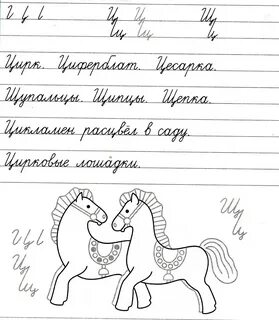 Ц Ц Щ
Ц Ц Щ
Цирк. Циферблат. Цесарка.
Щупальцы. Щипцы. Щепка.
Цикламен расцвёл в саду.
Цирковые лошадки.
Щ
Щ
Ц
Ц